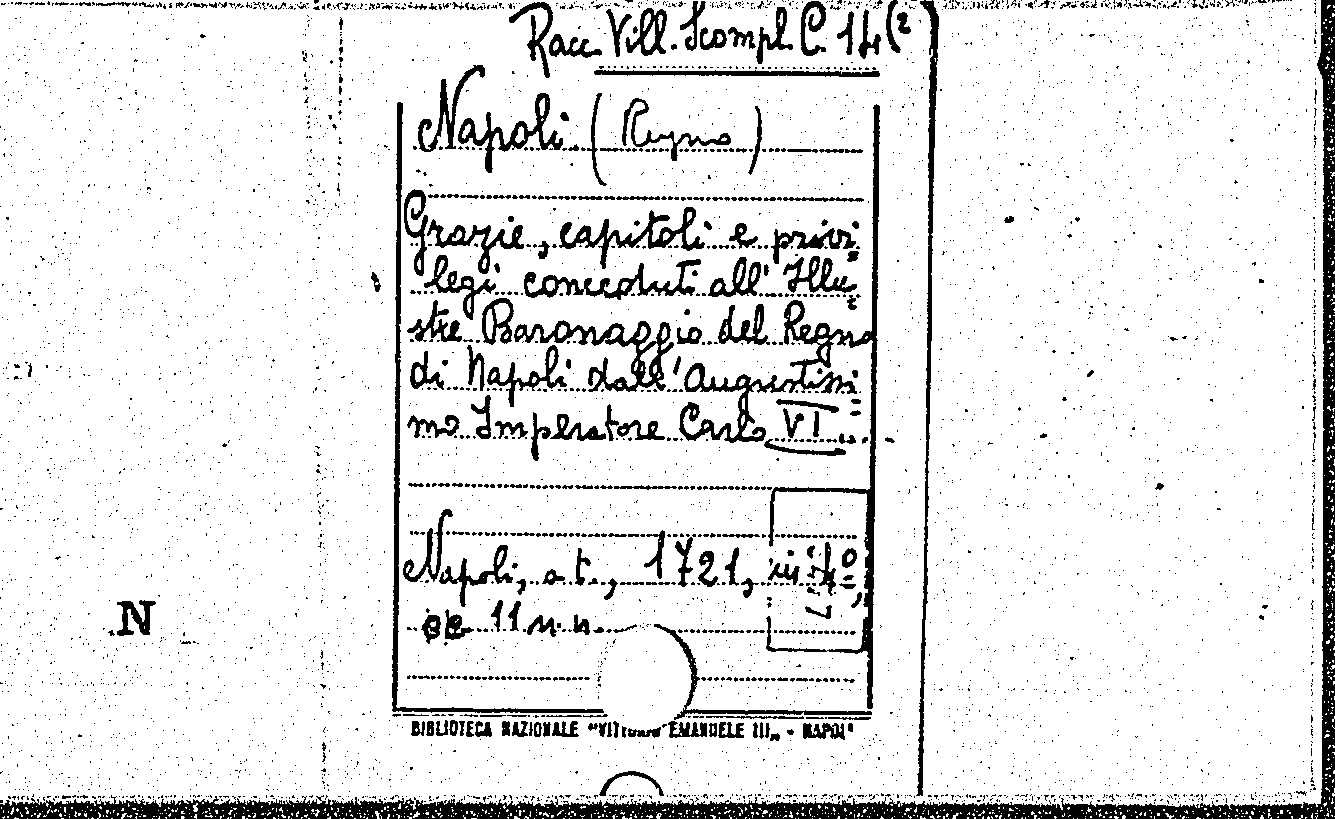 Racc. Vill. Scompl. C. 14(2
Napoli. (Regno)
Grazie, capitoli e privi=
legi conceduti all' Illu=
stre Baronaggio del Regno
di Napoli dall'Augustissi=
mo Imperatore Carlo VI...
Napoli, a t., 1721, in 4º,
cc. 11 n. n.
N
BIBLIOTECA NAZIONALE "VITTORIO EMANUELE III„ - NAPOLI